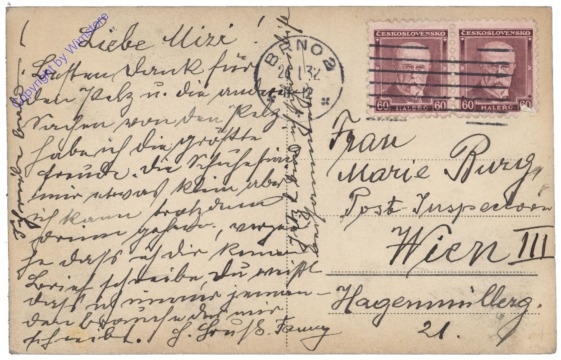 Liebe Mizi!
Besten Dank für
den Pelz u. die anderen
Sachen von den Pelz
habe ich die größte
Freude. Die Schuhe sind
mir etwas klein aber
ich kann trotzdem
drinn gehen,
he dass ich dir keinen
Brief schreibe, Du weißt
dass ich immer jeman-
den brauche der mir
schreibt. Gruß Fanny
Schreibe bald
copyright by Winistore
BRNO 2
ČESKOSLOVENSKO
ČESKOSLOVENSKO
60 HALÉŘŮ 60
60 HALÉŘŮ 60
Frau
Marie Burg
Post Inspectorin
Wien III
Hagenmüllerg.
21.